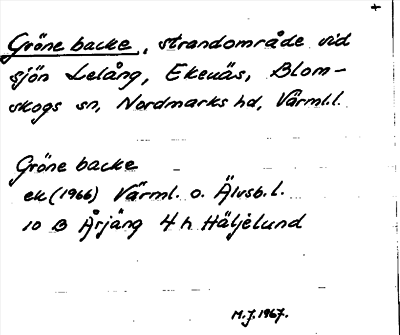 +
Gröne backe, strandområde vid
sjön Lelång, Ekenäs, Blom-
skogs sn, Nordmarks hd, Värml.l.
Gröne backe
ek (1966) Värml. o. Älvsb. l.
10 B Årjäng 4 h Häljelund
M.J. 1967.